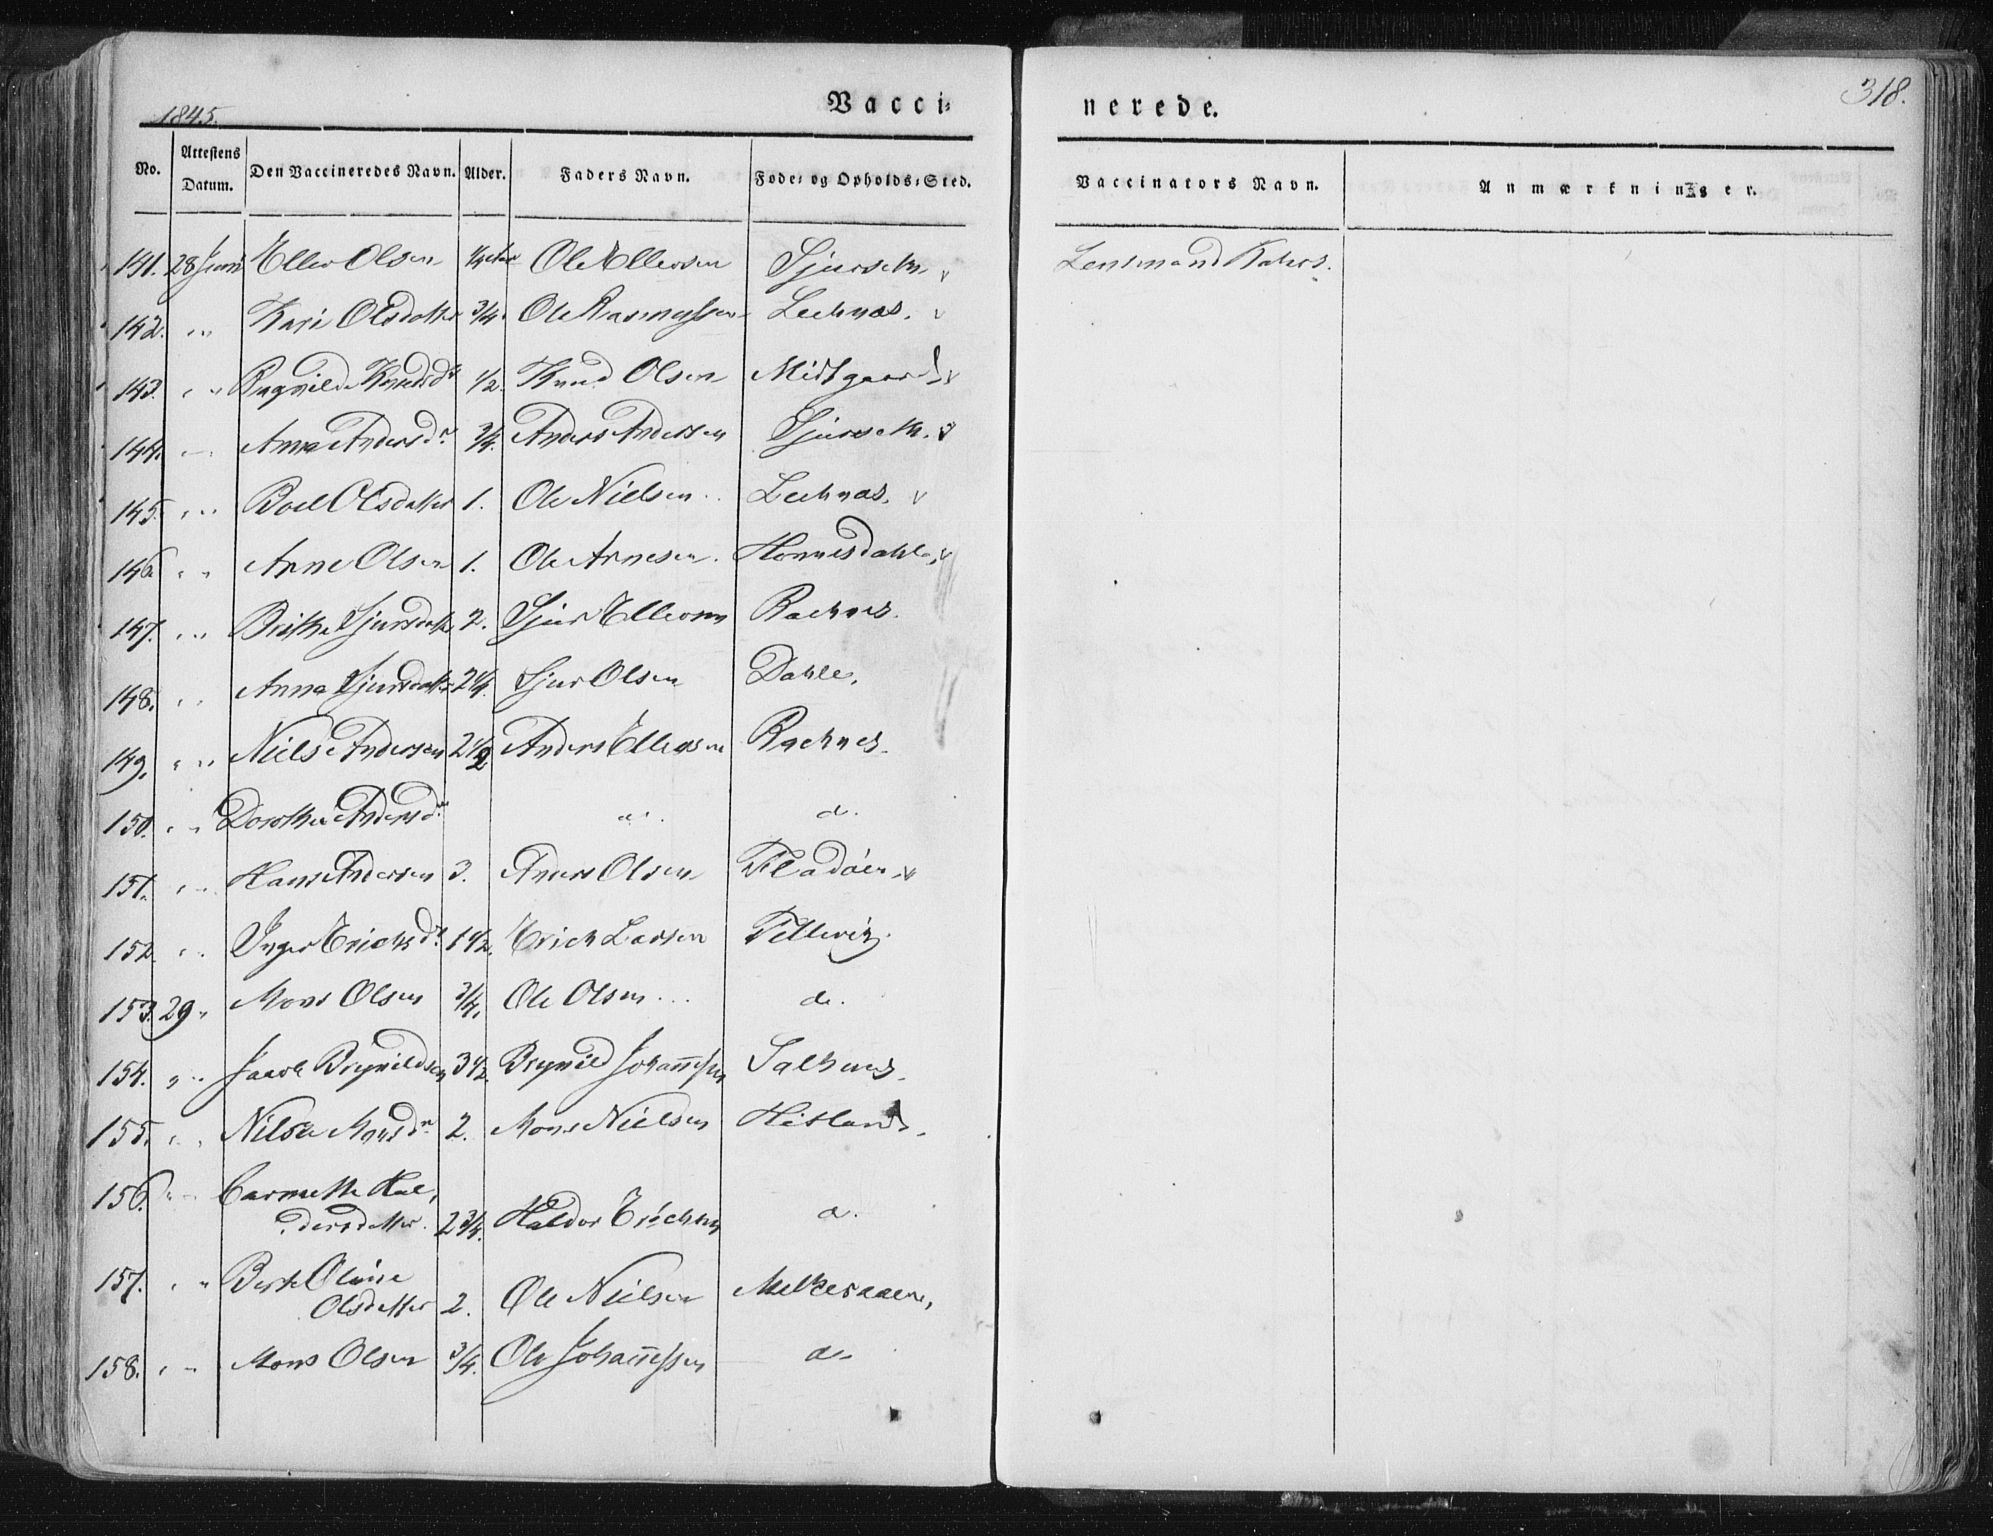 1845.
Vacci-
nerede.
318.
No.
Attestens Datum.
Den Vaccineredes Navn.
Alder.
Faders Navn.
Føde- og Opholds-Sted.
Vaccinators Navn.
Anmærkninger.
141. 28 Juni Eller Olsen Ole Ellersen
142. " " Kari Olsdatter 3/4 Ole Rasmussen
143. " " Ragnilde Knudsdr 1/2. Knud Olsen Midtgaard
144. Anna Andersdr 3/4. Anders Andersen
145. " " Boel Olsdatter 1. Ole Nielsen
146 " " Arne Olsen 1. Ole Arnesen. Honnesdahl
147. " " Birthe Sjursdatter 2. Sjur Ellersen
148. " " Anna Sjursdatter 2 1/4. Sjur Olsen Dahle.
149. " " Niels Andersen 2 1/2 Anders Ellersen
150. " " Dorothea Andersdr " d.
151. " " Hans Andersen 3. Anders Olsen Fladøen
152. " " Inger Erichsdr 1 1/2. Erich Larsen Tellevig
153. 29 " Mons Olsen 3/4. Ole Olsen d.
154. " " Jacob Brynildsen 3 1/2. Brynild Johannessen Salhus
155. " " Nilsa Monsdr 2. Mons Nielsen Hitland.
156. " " Carnette Hal-
dersdatter. 2 3/4. Haldor Erichsen d.
157. " " Berthe Oline
Olsdatter 2. Ole Nielsen
158. " " Mons Olsen 3/4. Ole Johannessen d.